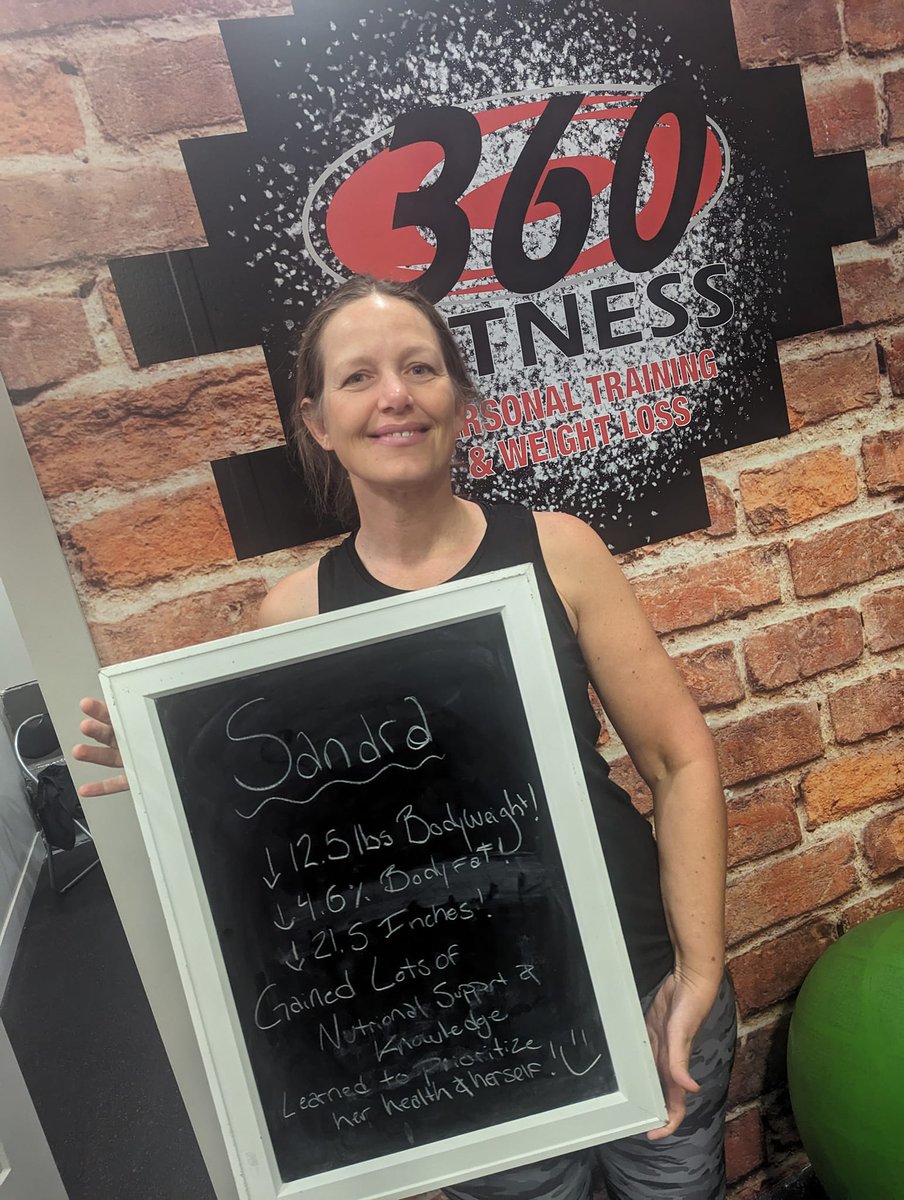 360
TNESS
RSONAL TRAINING
& WEIGHT LOSS
Sandra
↓ 12.5 lbs Bodyweight!
↓ 4.6% Body Fat!
↓ 21.5 Inches!
Gained Lots of
Nutrional Support &
Knowledge
Learned to prioritize
her health & herself!